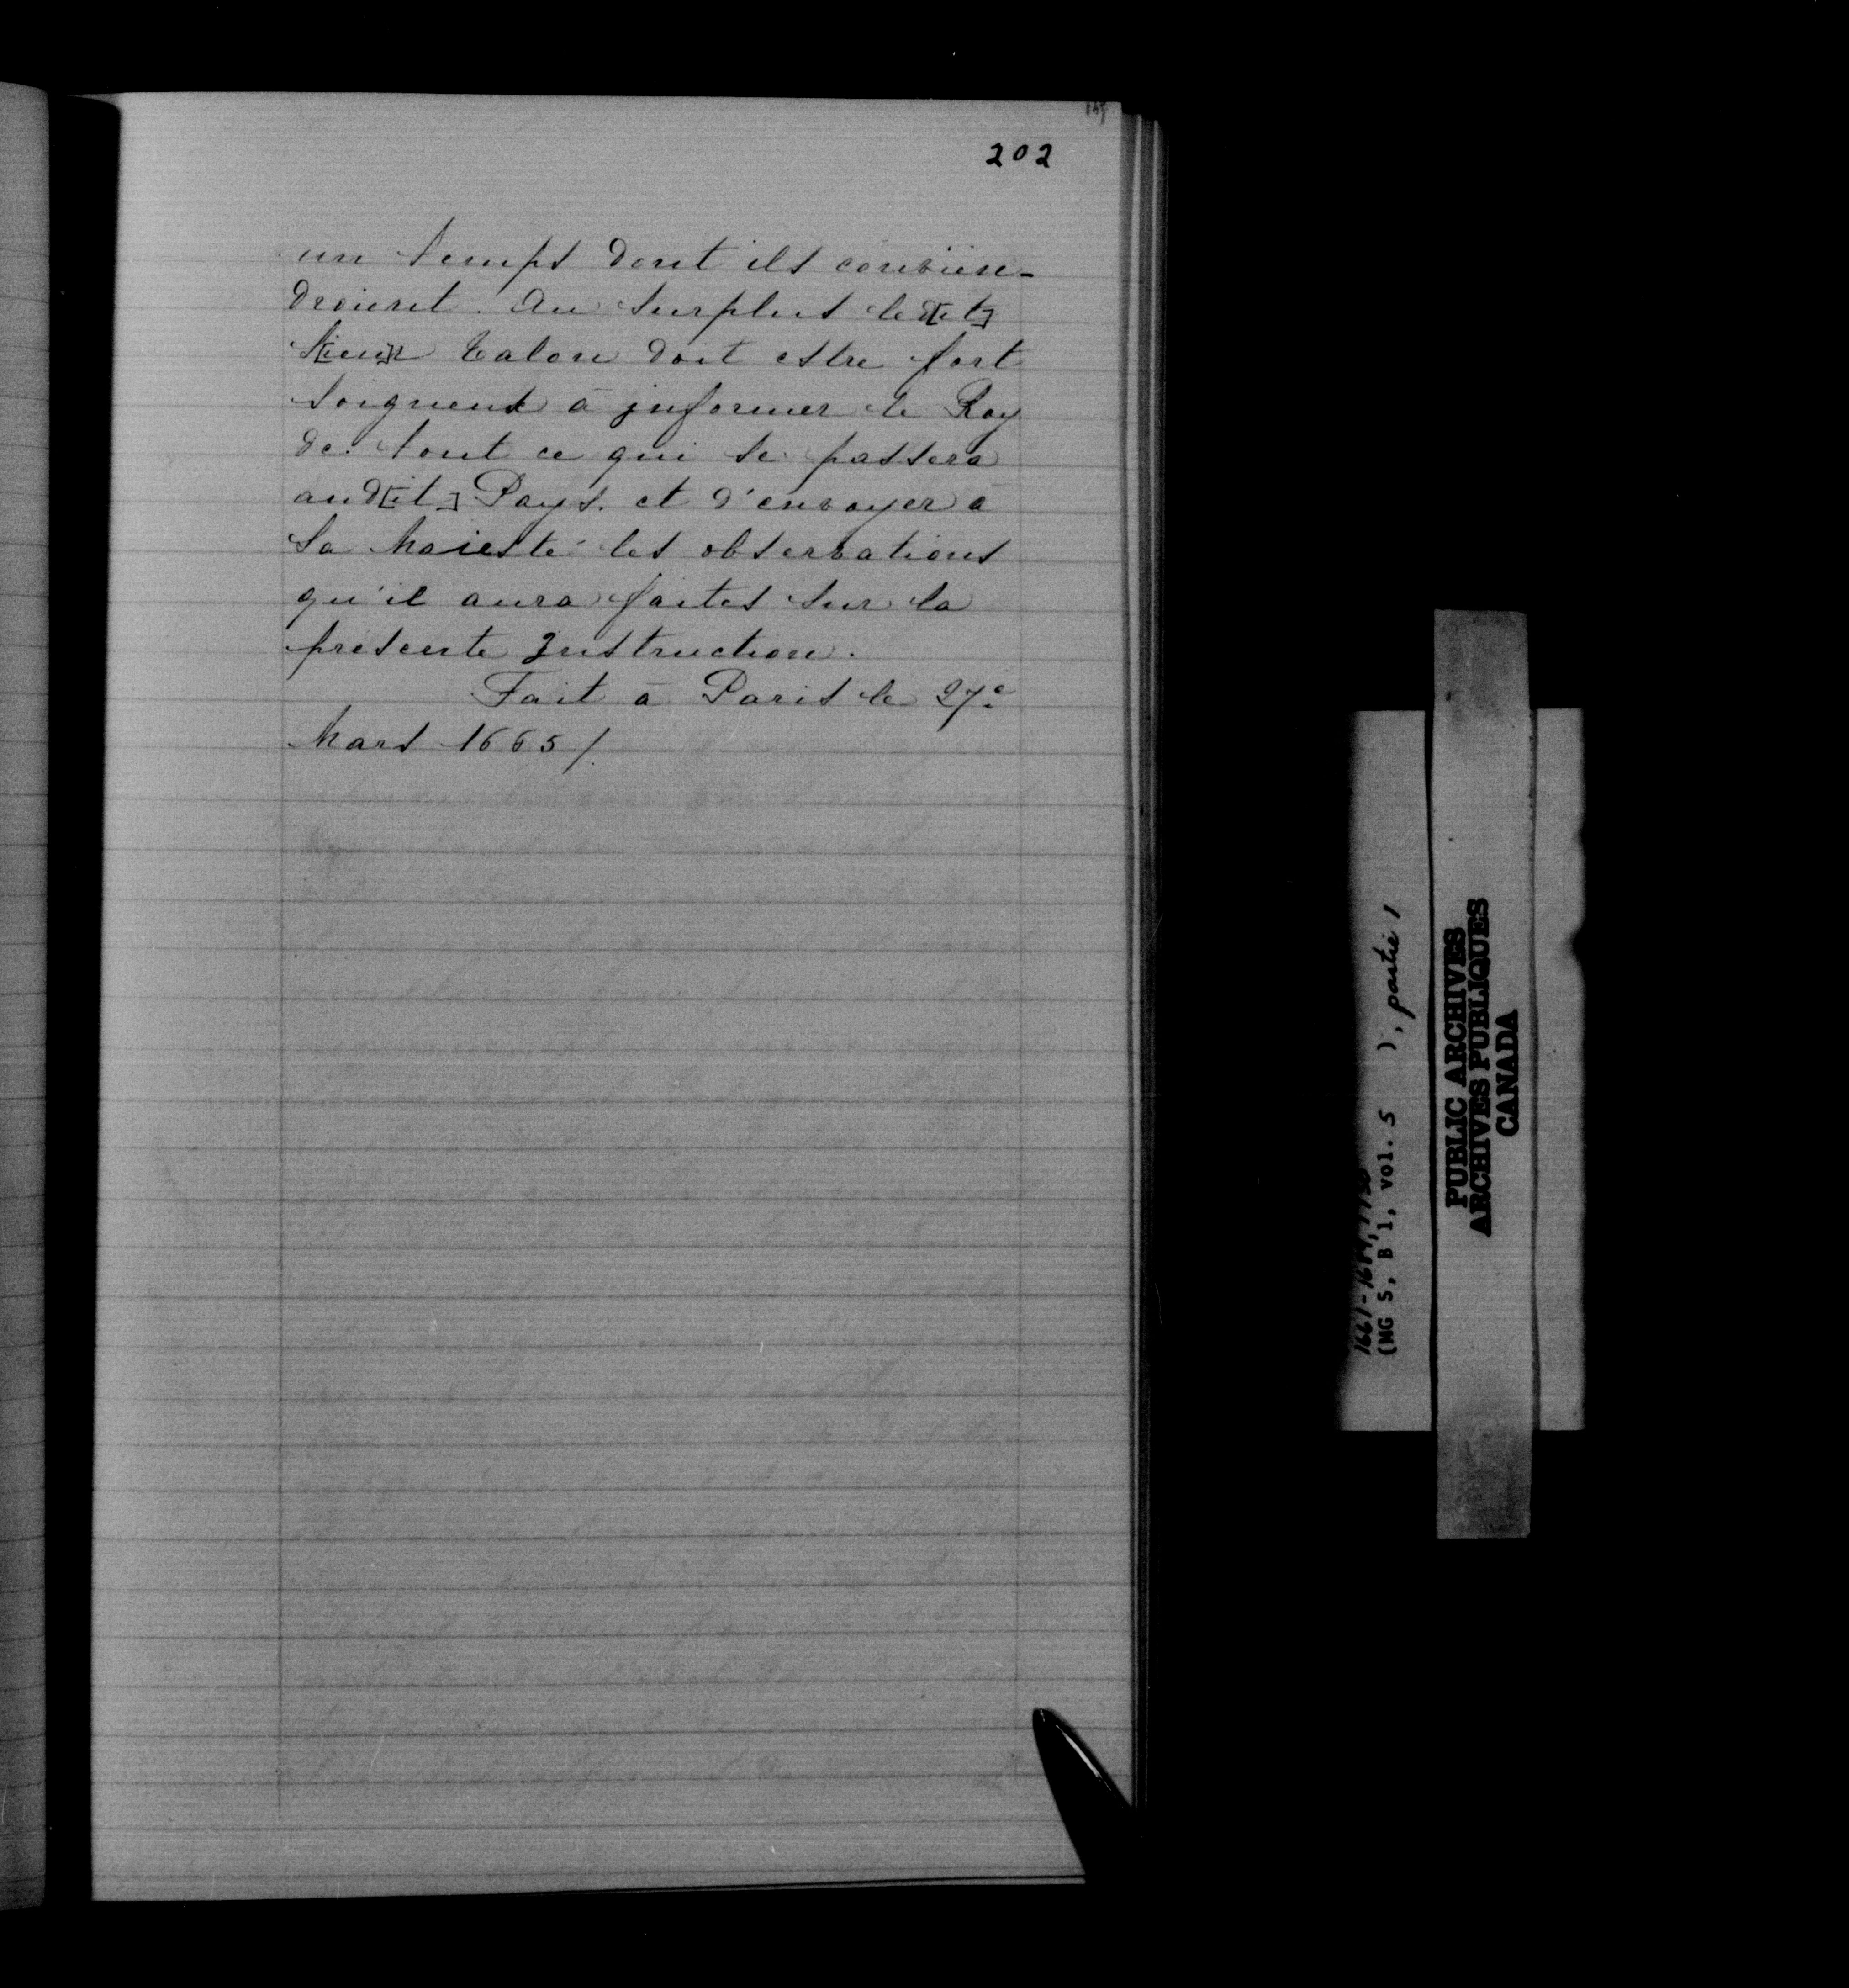 202
un temps dont ils convien-
droient. Au surplus led[it]
S[ieu]r Talon doit estre fort
soigneux à jnformer le Roy
de tout ce qui se passera
aud[it] Pays. et d'envoyer à
Sa Maiesté les observations
qu'il aura faites sur la
presente Instruction.
Fait à Paris le 27e
Mars 1665/.
(MG 5, B 1, vol. 5 ), partie 1
PUBLIC ARCHIVES
ARCHIVES PUBLIQUES
CANADA